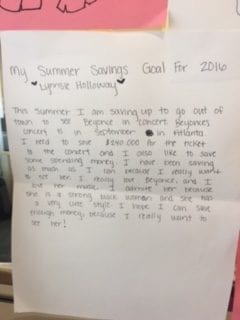 My Summer Savings Goal For 2016
Lynnsie Holloway
This Summer I am saving up to go out of
town to see Beyonce in concert. Beyonces
concert is in September in Atlanta.
I need to save $240.000 for the ticket
to the concert and I also like to save
some spending money. I have been saving
as much as I can because I really want
to see her. I really love Beyonce, and I
love her music. I admire her because
she is a strong black woman and she has
a very cute style. I hope I can save
enough money, because I really want to
see her!